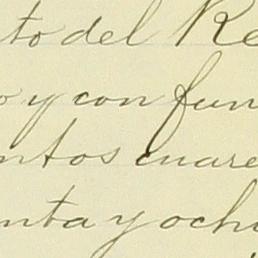 to del Re
o y con fun
ntos cuare
nta y ocho